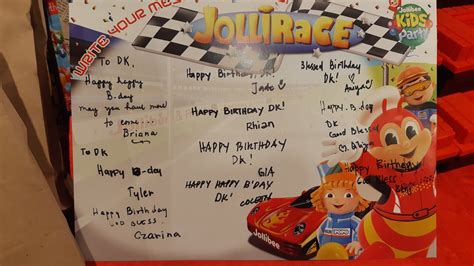 WRITE YOUR MES
JOLLIRACE
Jollibee
KIDS
Party
TO DK,
Happy happy
B-day
may you have more
to come
Briana
TO DK
Happy B-day
Tyler
Happy Birthday
GOD BLESS
Czarina
Happy Birthday, DK!
Jade
HAPPY BIRTHDAY DK!
Rhian
HAPPY BIRTHDAY
DK!
GIA
HAPPY HAPPY B'DAY
DK!
Blessed Birthday
DK!
Happy B-day
DK
God Bless
Happy Birthday
God Bless
Jollibee
POPO